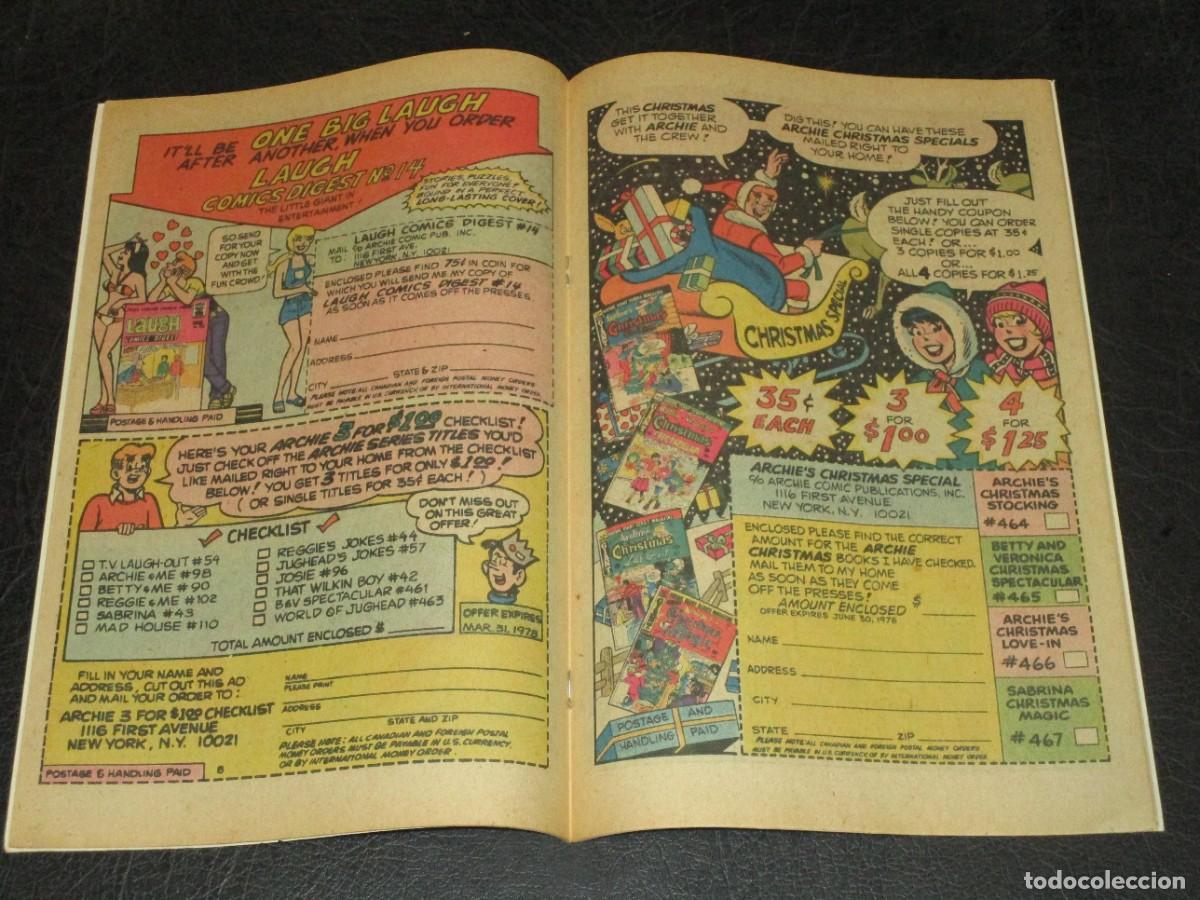 IT'LL BE ONE BIG LAUGH
AFTER ANOTHER, WHEN YOU ORDER
LAUGH
COMICS DIGEST Nº 14
THE LITTLE GIANT IN
ENTERTAINMENT!
STORIES, PUZZLES,
FUN FOR EVERYONE!
BOUND IN A PERFECT,
LONG-LASTING COVER!
SO SEND
FOR YOUR
COPY NOW
AND GET
WITH THE
FUN CROWD!
LAUGH
COMICS DIGEST
POSTAGE & HANDLING PAID
MAIL TO:
LAUGH COMICS DIGEST #14
c/o ARCHIE COMIC PUB. INC.
1116 FIRST AVE.
NEW YORK, N.Y. 10021
ENCLOSED PLEASE FIND 75¢ IN COIN FOR
WHICH YOU WILL SEND ME MY COPY OF
LAUGH COMICS DIGEST #14
AS SOON AS IT COMES OFF THE PRESSES.
NAME
ADDRESS
CITY STATE & ZIP
PLEASE NOTE: ALL CANADIAN AND FOREIGN POSTAL MONEY ORDERS
MUST BE PAYABLE IN U.S. CURRENCY OR BY INTERNATIONAL MONEY ORDER.
HERE'S YOUR ARCHIE 3 FOR $1.00 CHECKLIST!
JUST CHECK OFF THE ARCHIE SERIES TITLES YOU'D
LIKE MAILED RIGHT TO YOUR HOME FROM THE CHECKLIST
BELOW! YOU GET 3 TITLES FOR ONLY $1.00!
(OR SINGLE TITLES FOR 35¢ EACH!)
DON'T MISS OUT
ON THIS GREAT
OFFER!
CHECKLIST
T.V. LAUGH-OUT #54
ARCHIE & ME #98
BETTY & ME #90
REGGIE & ME #102
SABRINA #43
MAD HOUSE #110
REGGIE'S JOKES #44
JUGHEAD'S JOKES #57
JOSIE #96
THAT WILKIN BOY #42
B&V SPECTACULAR #461
WORLD OF JUGHEAD #463
TOTAL AMOUNT ENCLOSED $
OFFER EXPIRES
MAR. 31, 1978
FILL IN YOUR NAME AND
ADDRESS, CUT OUT THIS AD
AND MAIL YOUR ORDER TO:
ARCHIE 3 FOR $1.00 CHECKLIST
1116 FIRST AVENUE
NEW YORK, N.Y. 10021
NAME
PLEASE PRINT
ADDRESS
CITY STATE AND ZIP
PLEASE NOTE: ALL CANADIAN AND FOREIGN POSTAL
MONEY ORDERS MUST BE PAYABLE IN U.S. CURRENCY.
OR BY INTERNATIONAL MONEY ORDER.
POSTAGE & HANDLING PAID
6
THIS CHRISTMAS
GET IT TOGETHER
WITH ARCHIE AND
THE CREW!
DIG THIS! YOU CAN HAVE THESE
ARCHIE CHRISTMAS SPECIALS
MAILED RIGHT TO
YOUR HOME!
JUST FILL OUT
THE HANDY COUPON
BELOW! YOU CAN ORDER
SINGLE COPIES AT 35¢
EACH! OR...
3 COPIES FOR $1.00
OR...
ALL 4 COPIES FOR $1.25
CHRISTMAS SPECIAL
35¢
EACH
3
FOR
$1.00
4
FOR
$1.25
POSTAGE AND
HANDLING PAID
ARCHIE'S CHRISTMAS SPECIAL
c/o ARCHIE COMIC PUBLICATIONS, INC.
1116 FIRST AVENUE
NEW YORK, N.Y. 10021
ENCLOSED PLEASE FIND THE CORRECT
AMOUNT FOR THE ARCHIE
CHRISTMAS BOOKS I HAVE CHECKED.
MAIL THEM TO MY HOME
AS SOON AS THEY COME
OFF THE PRESSES!
AMOUNT ENCLOSED $
OFFER EXPIRES JUNE 30, 1978
NAME
ADDRESS
CITY
STATE ZIP
PLEASE NOTE: ALL CANADIAN AND FOREIGN POSTAL MONEY ORDERS
MUST BE PAYABLE IN U.S. CURRENCY OR BY INTERNATIONAL MONEY ORDER.
ARCHIE'S
CHRISTMAS
STOCKING
#464
BETTY AND
VERONICA
CHRISTMAS
SPECTACULAR
#465
ARCHIE'S
CHRISTMAS
LOVE-IN
#466
SABRINA
CHRISTMAS
MAGIC
#467
todocoleccion